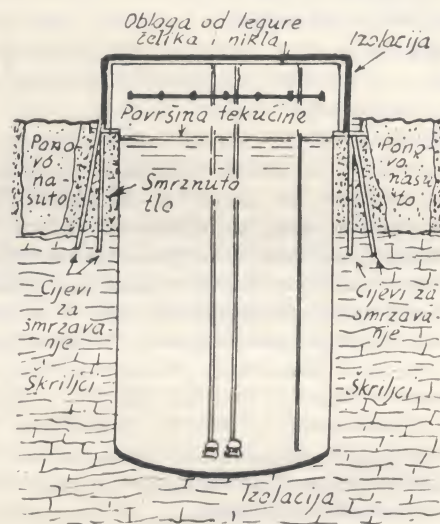 Obloga od legure
čelika i nikla
Izolacija
Površina tekućine
Pono-
vo na-
suto
Pono-
vo nasu-
to
Smrznuto
tlo
Cijevi
za
smrzava-
nje
Cijevi za
smrzava-
nje
Škriljci
Škriljci
Izolacija